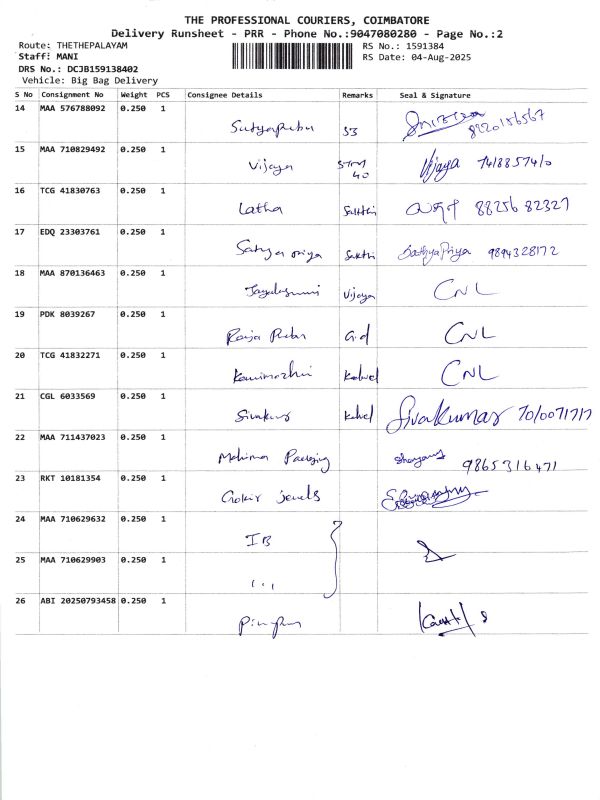 THE PROFESSIONAL COURIERS, COIMBATORE
Delivery Runsheet - PRR - Phone No.:9047080280 - Page No.:2
Route: THETHEPALAYAM RS No.: 1591384
Staff: MANI RS Date: 04-Aug-2025
DRS No.: DCJB159138402
Vehicle: Big Bag Delivery
S No Consignment No Weight PCS Consignee Details Remarks Seal & Signature
14 MAA 576788092 0.250 1
53 8220156567
15 MAA 710829492 0.250 1
Vijaya 40 Vijaya 7418857410
16 TCG 41830763 0.250 1
Latha Sakthi 88256 82327
17 EDQ 23303761 0.250 1
Sathya priya Sakthi SathyaPriya 9894328172
18 MAA 870136463 0.250 1
Vijaya CNL
19 PDK 8039267 0.250 1
Raja CNL
20 TCG 41832271 0.250 1
CNL
21 CGL 6033569 0.250 1
Sivakumar 7010071717
22 MAA 711437023 0.250 1
9865316471
23 RKT 10181354 0.250 1
jewels
24 MAA 710629632 0.250 1
IB
25 MAA 710629903 0.250 1
26 ABI 20250793458 0.250 1